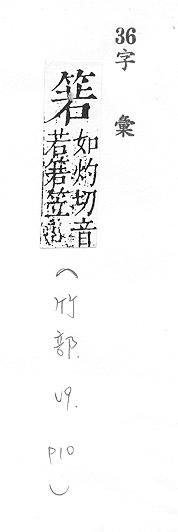 36
字彙
箬
如灼切音
若箬笠
（竹部. u9. p10）